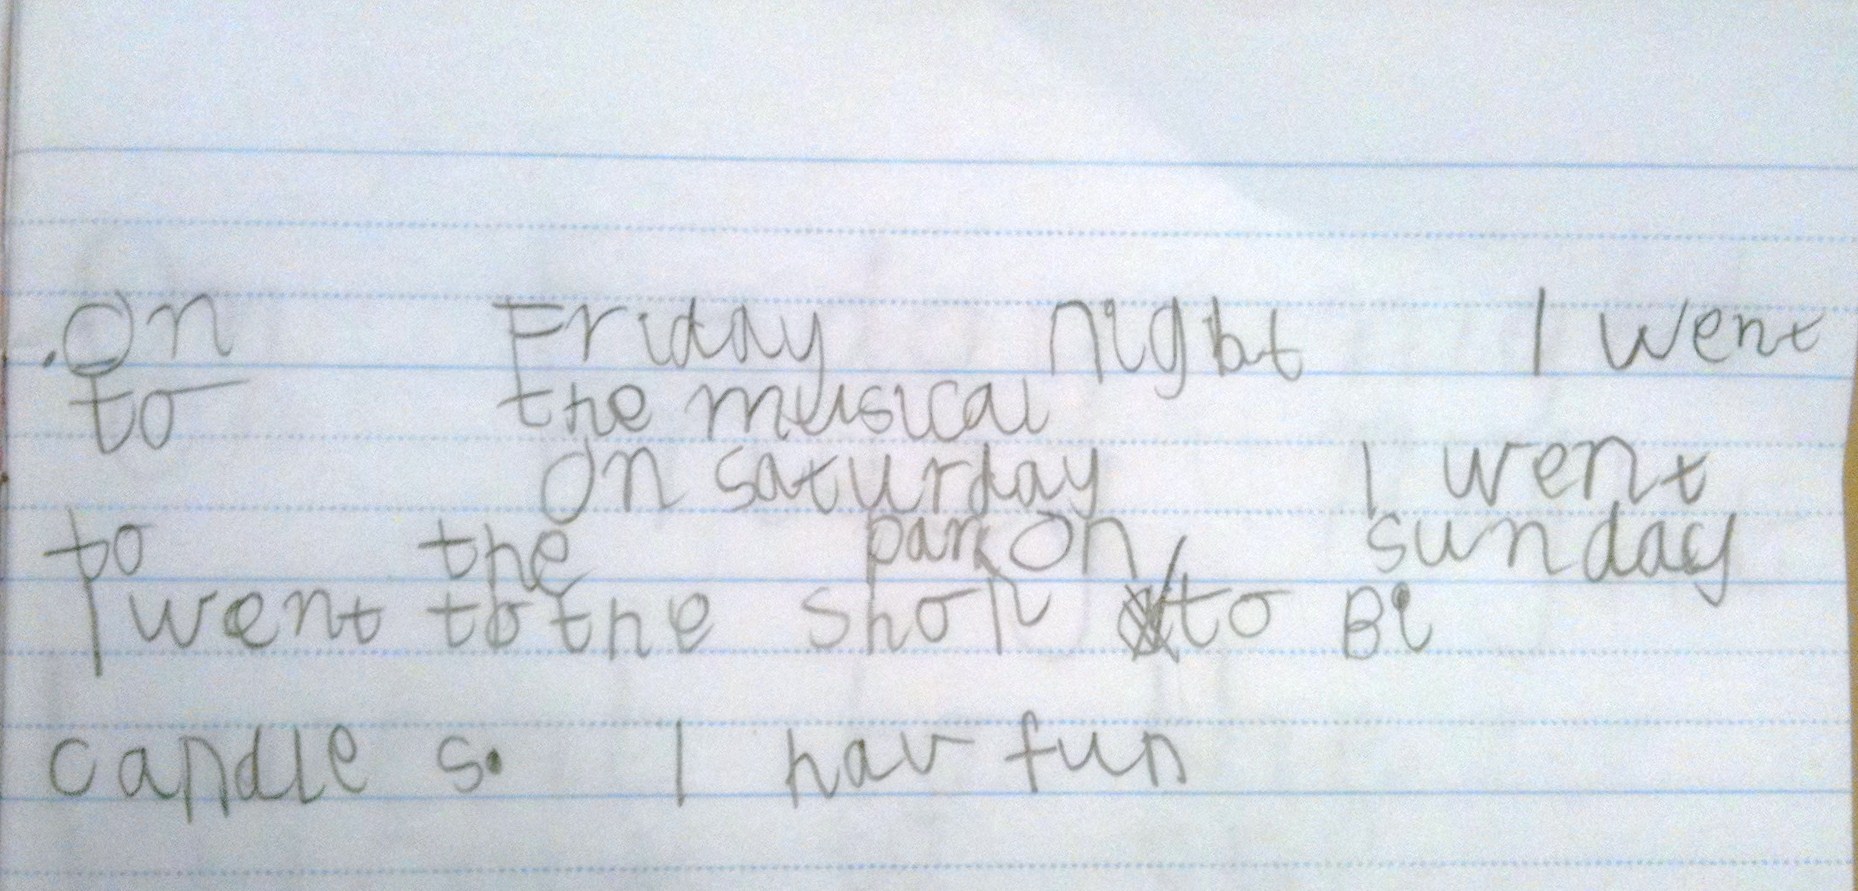 On Friday night I went
to the musical
On saturday I went
to the park on sunday
I went to the shop to Bi
candle s. I hav fun